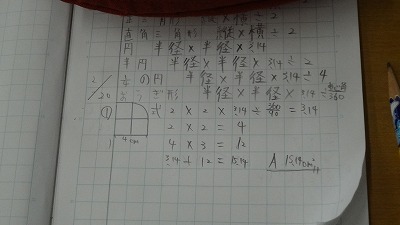 正三角形 縦×横÷2
直角三角形 縦×横÷2
円 半径×半径×3.14
半円 半径×半径×3.14÷2
半径×半径×3.14÷4
おうぎ形 半径×半径×3.14÷
360
2/20
① 式 2×2×3.14÷360/90=3.14
2×2=4
4cm
4×3=12
3.14+12=15.14 A 15.14cm²